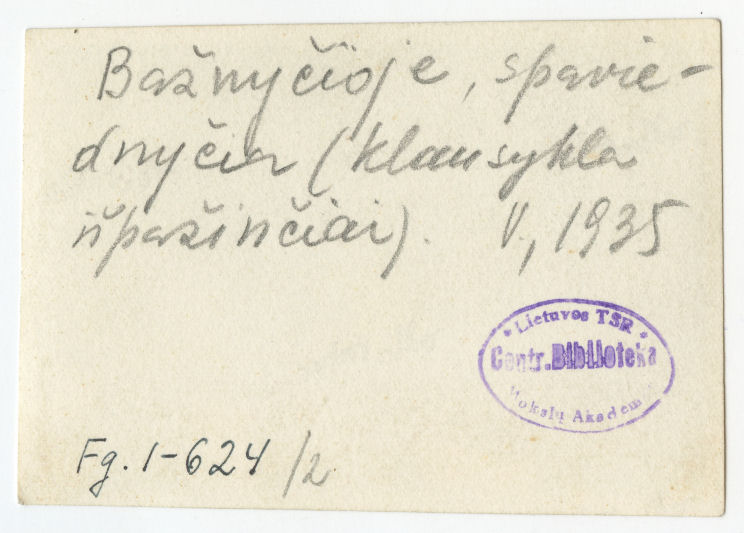 Bažnyčioje, spavie-
dnyčia (klausykla
išpažinčiai). V, 1935
Lietuvos TSR
Centr. Biblioteka
Mokslų Akadem
Fg. 1-624/2